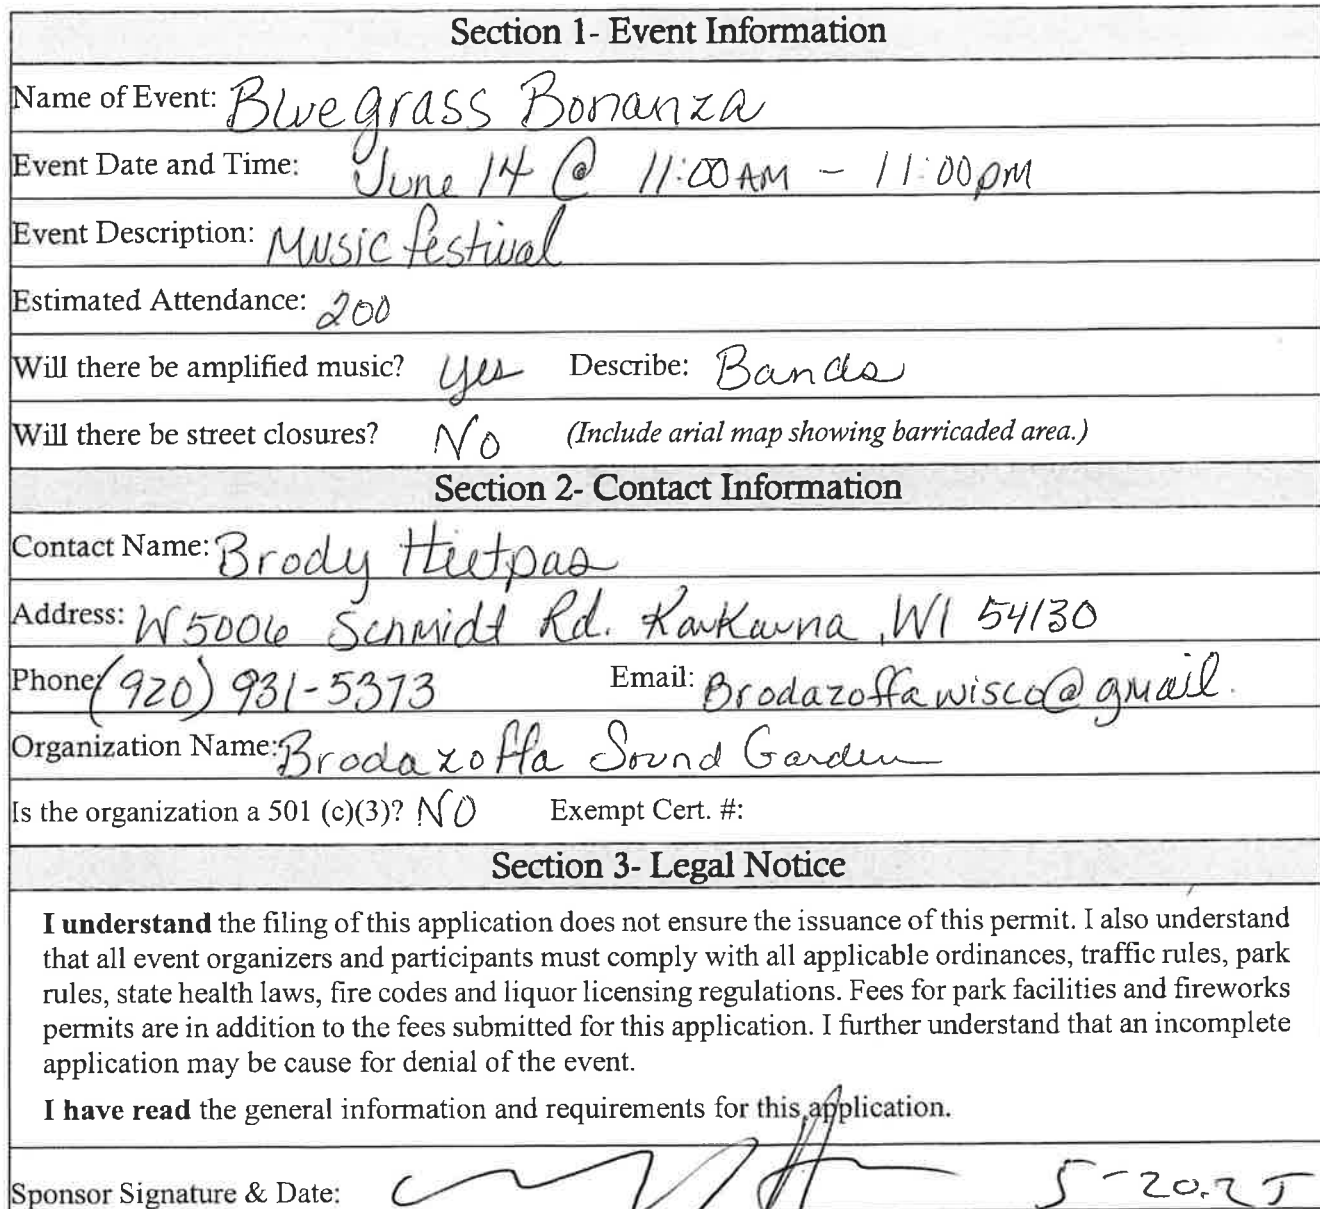 Section 1- Event Information
Name of Event: Bluegrass Bonanza
Event Date and Time: June 14 @ 11:00 AM - 11:00 pm
Event Description: Music festival
Estimated Attendance: 200
Will there be amplified music? yes Describe: Bands
Will there be street closures? No (Include arial map showing barricaded area.)
Section 2- Contact Information
Contact Name: Brody Hietpas
Address: W5006 Schmidt Rd. Kaukauna, WI 54130
Phone (920) 931-5373 Email: Brodazoffawisco@gmail.
Organization Name: Brodazoffa Sound Garden
Is the organization a 501 (c)(3)? NO Exempt Cert. #:
Section 3- Legal Notice
I understand the filing of this application does not ensure the issuance of this permit. I also understand
that all event organizers and participants must comply with all applicable ordinances, traffic rules, park
rules, state health laws, fire codes and liquor licensing regulations. Fees for park facilities and fireworks
permits are in addition to the fees submitted for this application. I further understand that an incomplete
application may be cause for denial of the event.
I have read the general information and requirements for this application.
Sponsor Signature & Date: 5-20.25